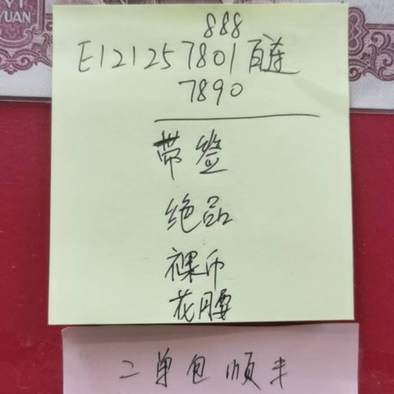 YI
YUAN
888
E121257801百连
7890
带签
绝品
裸币
花腰
二单包顺丰